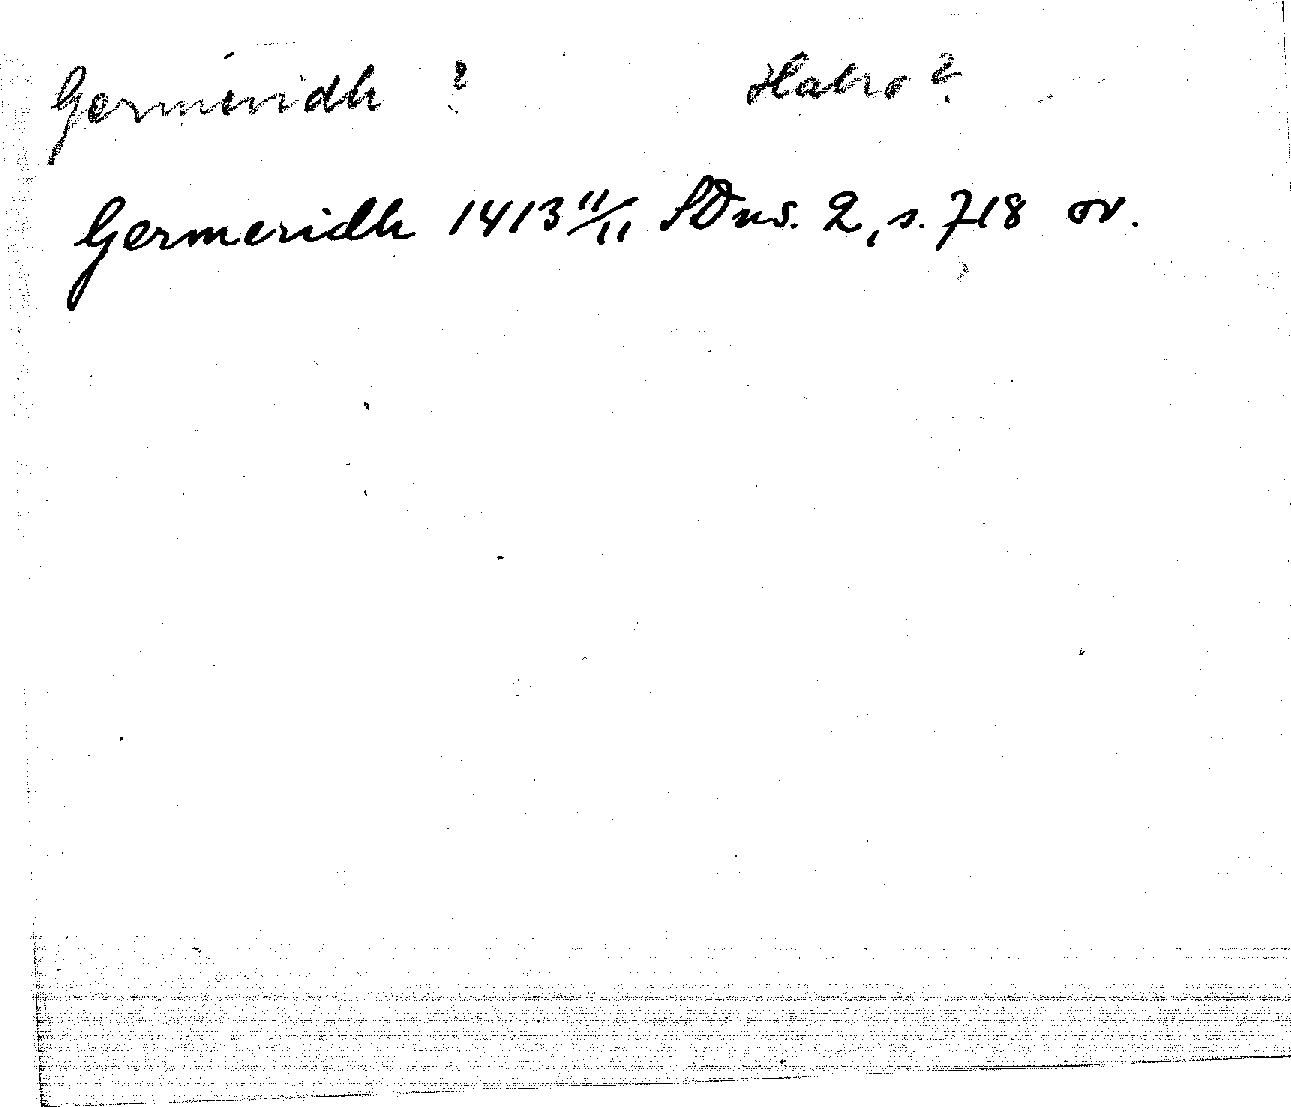 Germeridh ? Habro ?
Germeridh 1413 11/11 SDns. 2, s. 718 or.